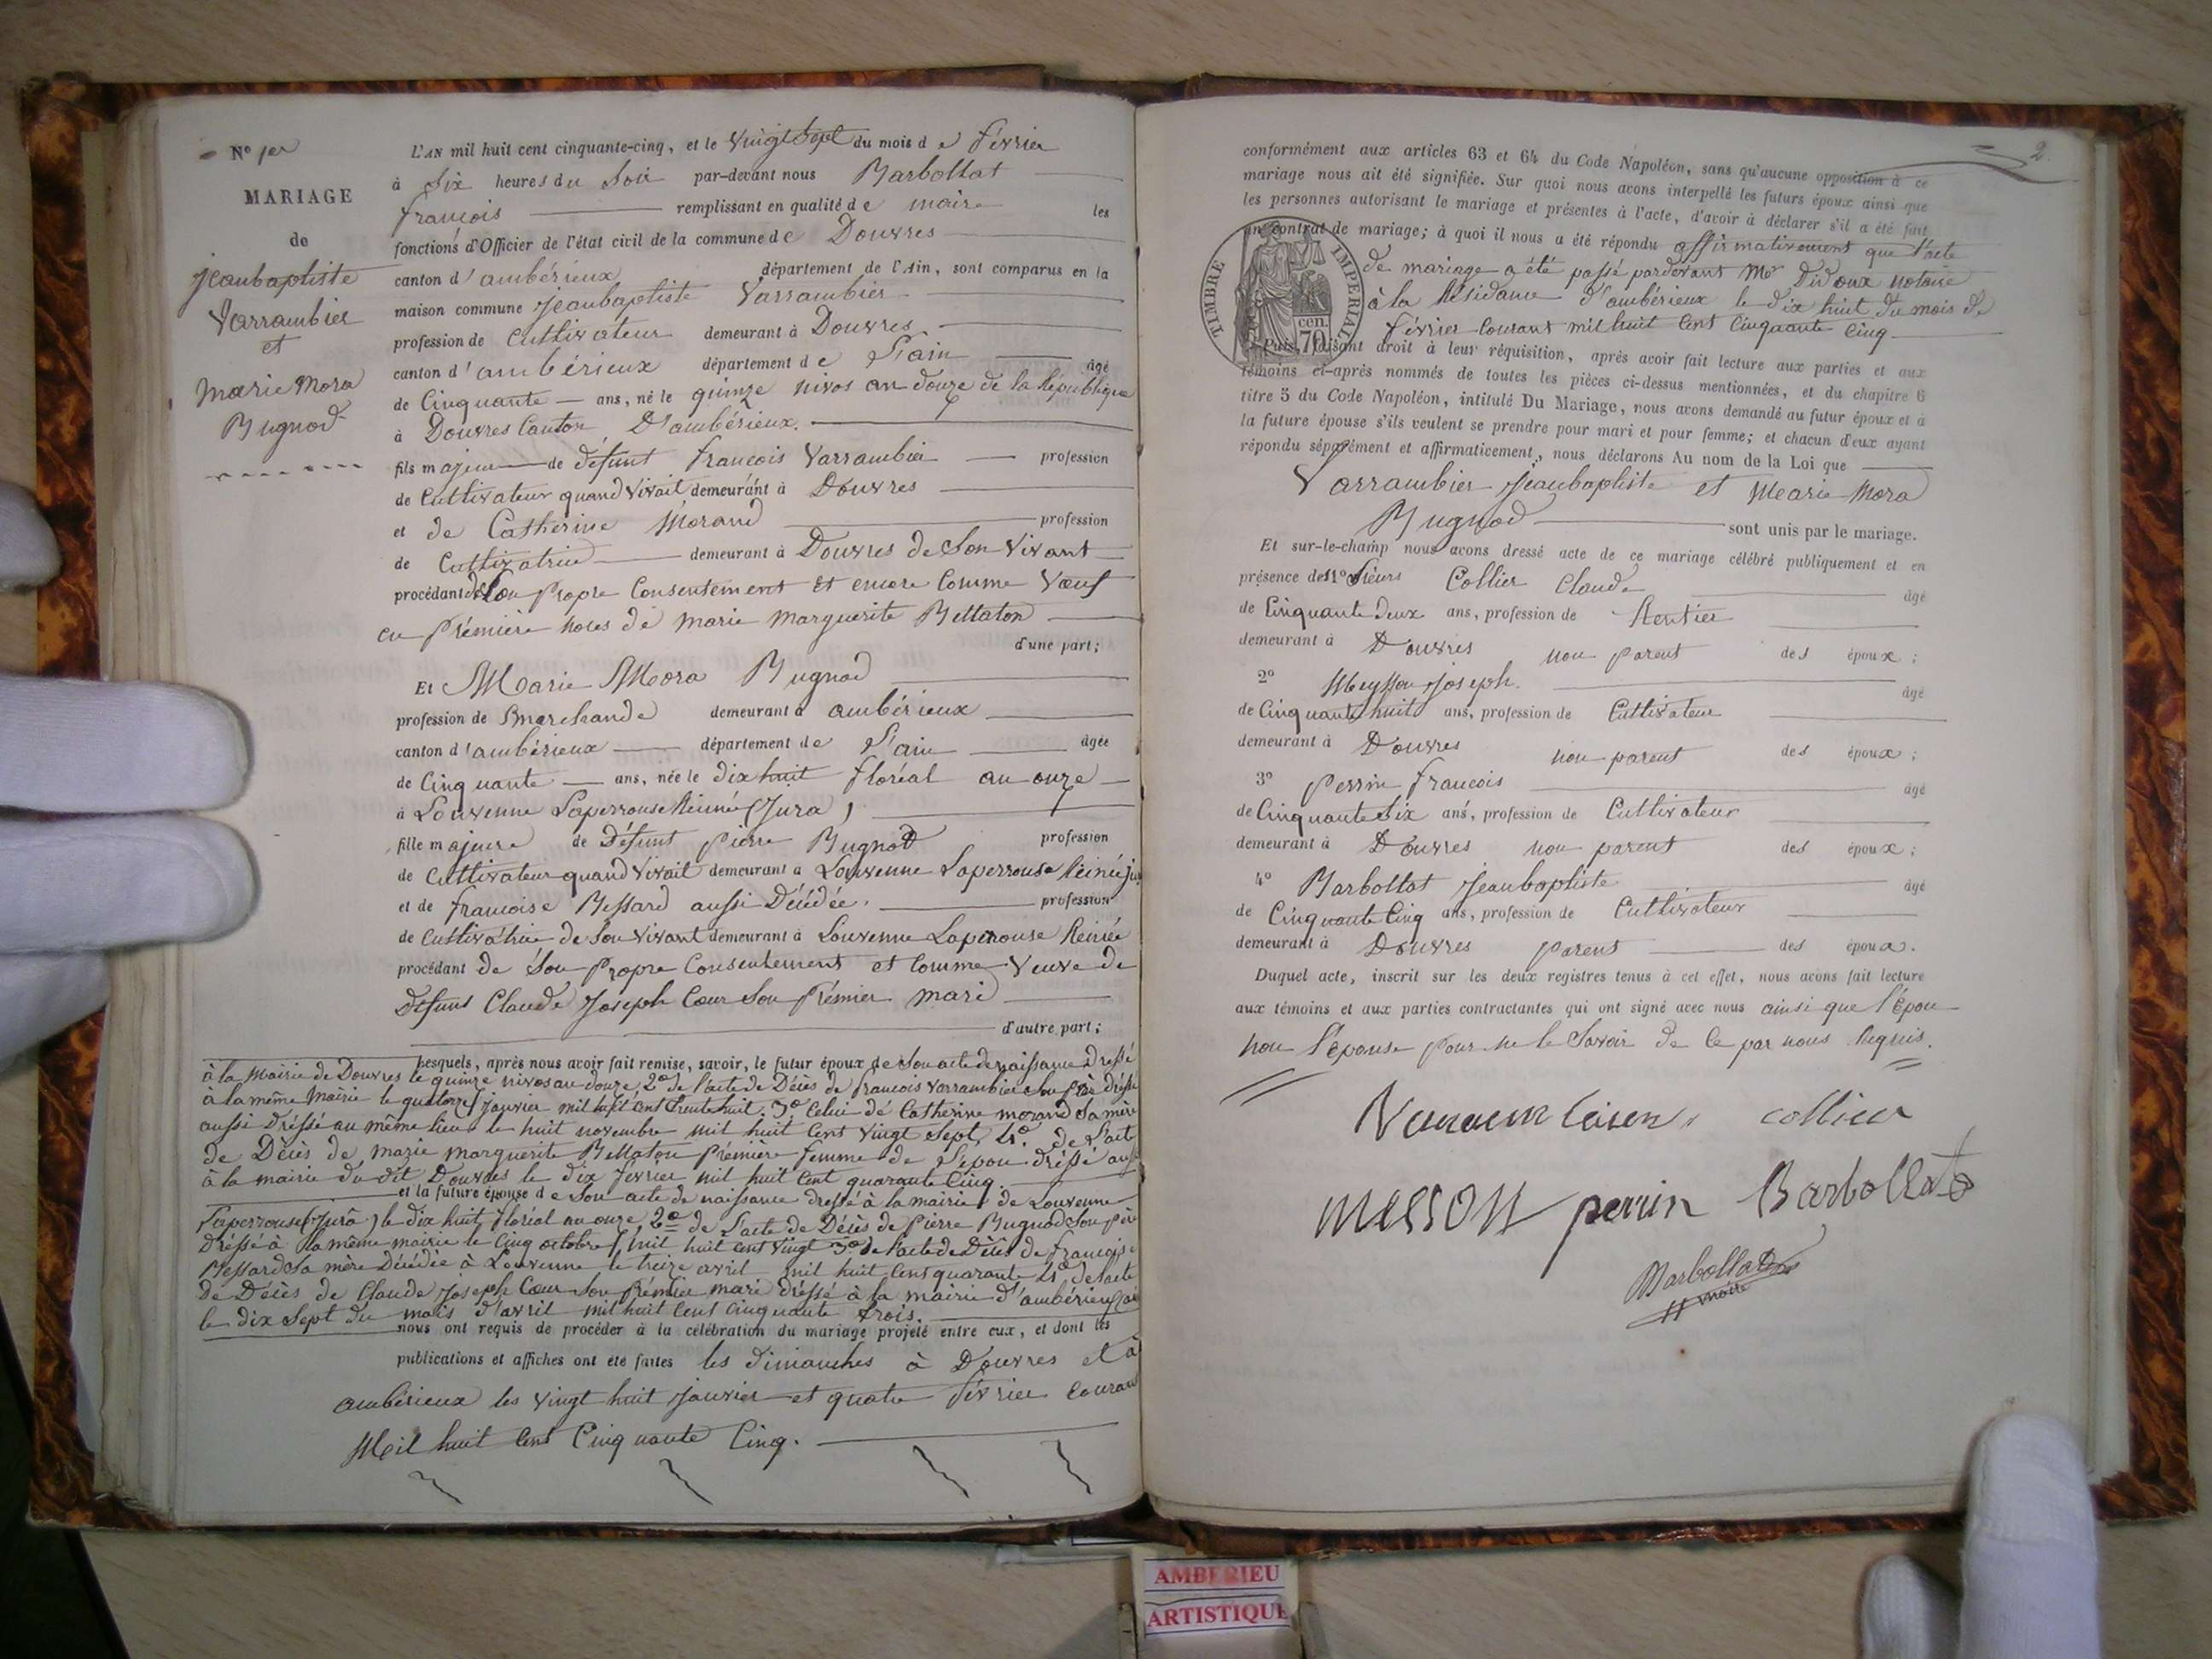 N° 1er
MARIAGE
de
jeanbaptiste
Varrambier
et
marie Mora
Bugnod
L'AN mil huit cent cinquante-cinq, et le vingt Sept du mois de février
à Six heures du Soir par-devant nous Barbollat
francois remplissant en qualité de maire les
fonctions d'Officier de l'état civil de la commune de Douvres
canton d'ambérieux département de l'Ain, sont comparus en la
maison commune Jeanbaptiste Varrambier
profession de Cultivateur demeurant à Douvres
canton d'ambérieux département de l'ain âgé
de Cinquante ans, né le quinze nivos an douze de la République
à Douvres Canton D'ambérieux.
fils majeur de défunt francois Varrambier profession
de Cultivateur quand vivait demeurant à Douvres
et de Catherine Morand profession
de Cultivatrice demeurant à Douvres de Son Vivant
procédant de Son propre Consentement Et encore Comme Vœuf
en prémiere noces de marie marguerite Bellaton
d'une part;
Et Marie Mora Bugnod
profession de marchande demeurant à ambérieux
canton d'ambérieux département de l'ain âgée
de Cinquante ans, née le dix huit floréal an onze
à Louvenne Laperrouse Réunée (Jura)
fille majeure de Défunt pierre Bugnod profession
de Cultivateur quand vivait demeurant à Louvenne Laperrouse Réinée ju
et de francoise Bessard aussi Décédée. profession
de Cultivatrice de Son Vivant demeurant à Louvenne Laperrouse Réinée
procédant de Son propre Consentement et Comme Veuve de
defunt Claude Joseph Cœur Son prémier mari
d'autre part;
Lesquels, après nous avoir fait remise, savoir, le futur époux de Son acte de naissance dressé
à la Mairie de Douvres le quinze nivos an douze, 2° de l'acte de Décès de francois Varrambier Son père dréssé
à la même mairie le quatorze janvier mil huit cent trente huit. 3° Celui de Catherine morand Sa mère
aussi Dréssé au même lieu le huit novembre mil huit Cent Vingt Sept, 4° de L'acte
de Décès de marie marguerite Bellaton prémière femme de L'épou dréssé aussi
à la mairie du dit Douvres le dix février mil huit Cent quarante Cinq.
et la future épouse de Son acte de naissance dressé à la mairie de Louvenne
Laperrouse (Jura) le dix huit floréal an onze, 2° de L'acte de Décès de pierre Bugnod Son père
Dréssé à la même mairie le Cinq octobre mil huit Cent vingt 3° de l'acte de Décès de francoise
Bessard Sa mère Décédée à Louvenne le treize avril mil huit Cent quarante 4° de l'acte
de Décès de Claude Joseph Cœur Son prémier mari dréssé à la mairie d'ambérieux
le dix Sept du mois d'avril mil huit Cent Cinquante trois.
nous ont requis de procéder à la célébration du mariage projeté entre eux, et dont les
publications et affiches ont été faites les dimanches à Douvres et à
ambérieux les vingt huit Janvier et quatre février Couran
Mil huit Cent Cinquante Cinq.
2.
conformément aux articles 63 et 64 du Code Napoléon, sans qu'aucune opposition à ce
mariage nous ait été signifiée. Sur quoi nous avons interpellé les futurs époux ainsi que
les personnes autorisant le mariage et présentes à l'acte, d'avoir à déclarer s'il a été fait
un contrat de mariage; à quoi il nous a été répondu affirmativement que l'acte
de mariage a été passé pardevant Me Didoux notaire
à la Résidance d'ambérieux le dix huit du mois de
février Courant mil huit Cent Cinquante Cinq
TIMBRE IMPERIAL
70 cen.
Puis, faisant droit à leur réquisition, après avoir fait lecture aux parties et aux
témoins ci-après nommés de toutes les pièces ci-dessus mentionnées, et du chapitre 6
titre 5 du Code Napoléon, intitulé Du Mariage, nous avons demandé au futur époux et à
la future épouse s'ils veulent se prendre pour mari et pour femme; et chacun d'eux ayant
répondu séparément et affirmativement, nous déclarons Au nom de la Loi que
Varrambier Jeanbaptiste et Marie Mora
Bugnod sont unis par le mariage.
Et sur-le-champ nous avons dressé acte de ce mariage célébré publiquement et en
présence des 1° Sieurs Collier Claude âgé
de Cinquante deux ans, profession de Rentier
demeurant à Douvres non parent des époux;
2° Meysson Joseph. âgé
de Cinquante huit ans, profession de Cultivateur
demeurant à Douvres non parent des époux;
3° perrin francois âgé
de Cinquante Six ans, profession de Cultivateur
demeurant à Douvres non parent des époux;
4° Barbollat Jeanbaptiste âgé
de Cinquante Cinq ans, profession de Cultivateur
demeurant à Douvres parent des époux.
Duquel acte, inscrit sur les deux registres tenus à cet effet, nous avons fait lecture
aux témoins et aux parties contractantes qui ont signé avec nous ainsi que l'Epou
non l'Epouse pour ne le Savoir de Ce par nous Requis.
collier
messon perrin Barbollat
Barbollat
maire
AMBERIEU
ARTISTIQUE